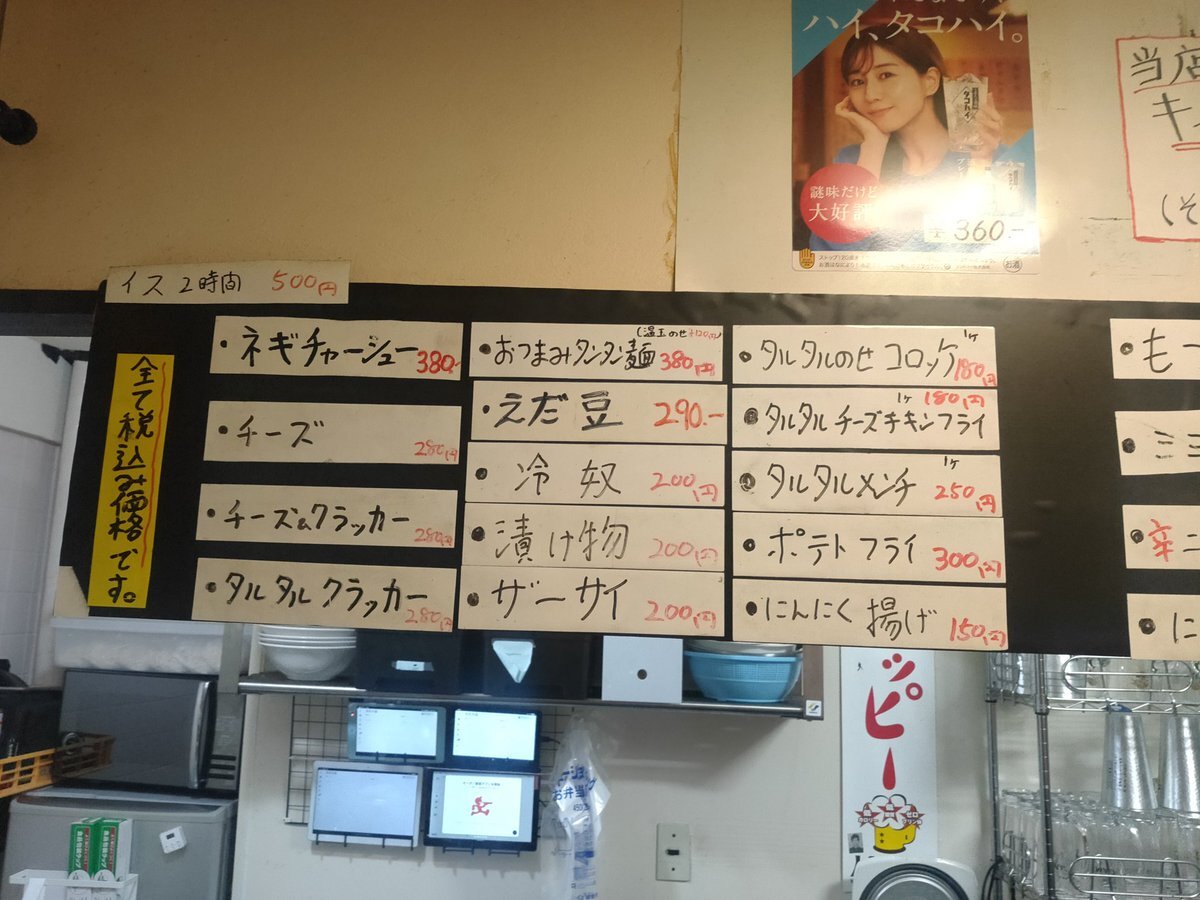 ハイ、タコハイ。
謎味だけど
大好評
360.-
ストップ!20歳未
お酒
当店
キ
(そ
イス 2時間 500円
全て税込み価格です。
・ネギチャーシュー 380.-
・チーズ 280円
・チーズ&クラッカー 280円
・タルタルクラッカー 280円
(温玉のせ+120円)
・おつまみタンタン麺 380円
・えだ豆 290.-
・冷奴 200円
・漬け物 200円
・ザーサイ 200円
・タルタルのせコロッケ 1ケ 180円
・タルタルチーズチキンフライ 1ケ 180円
・タルタルメンチ 1ケ 250円
・ポテトフライ 300円
・にんにく揚げ 150円
・も
・ミ
・辛
・に
ッピー
お弁当